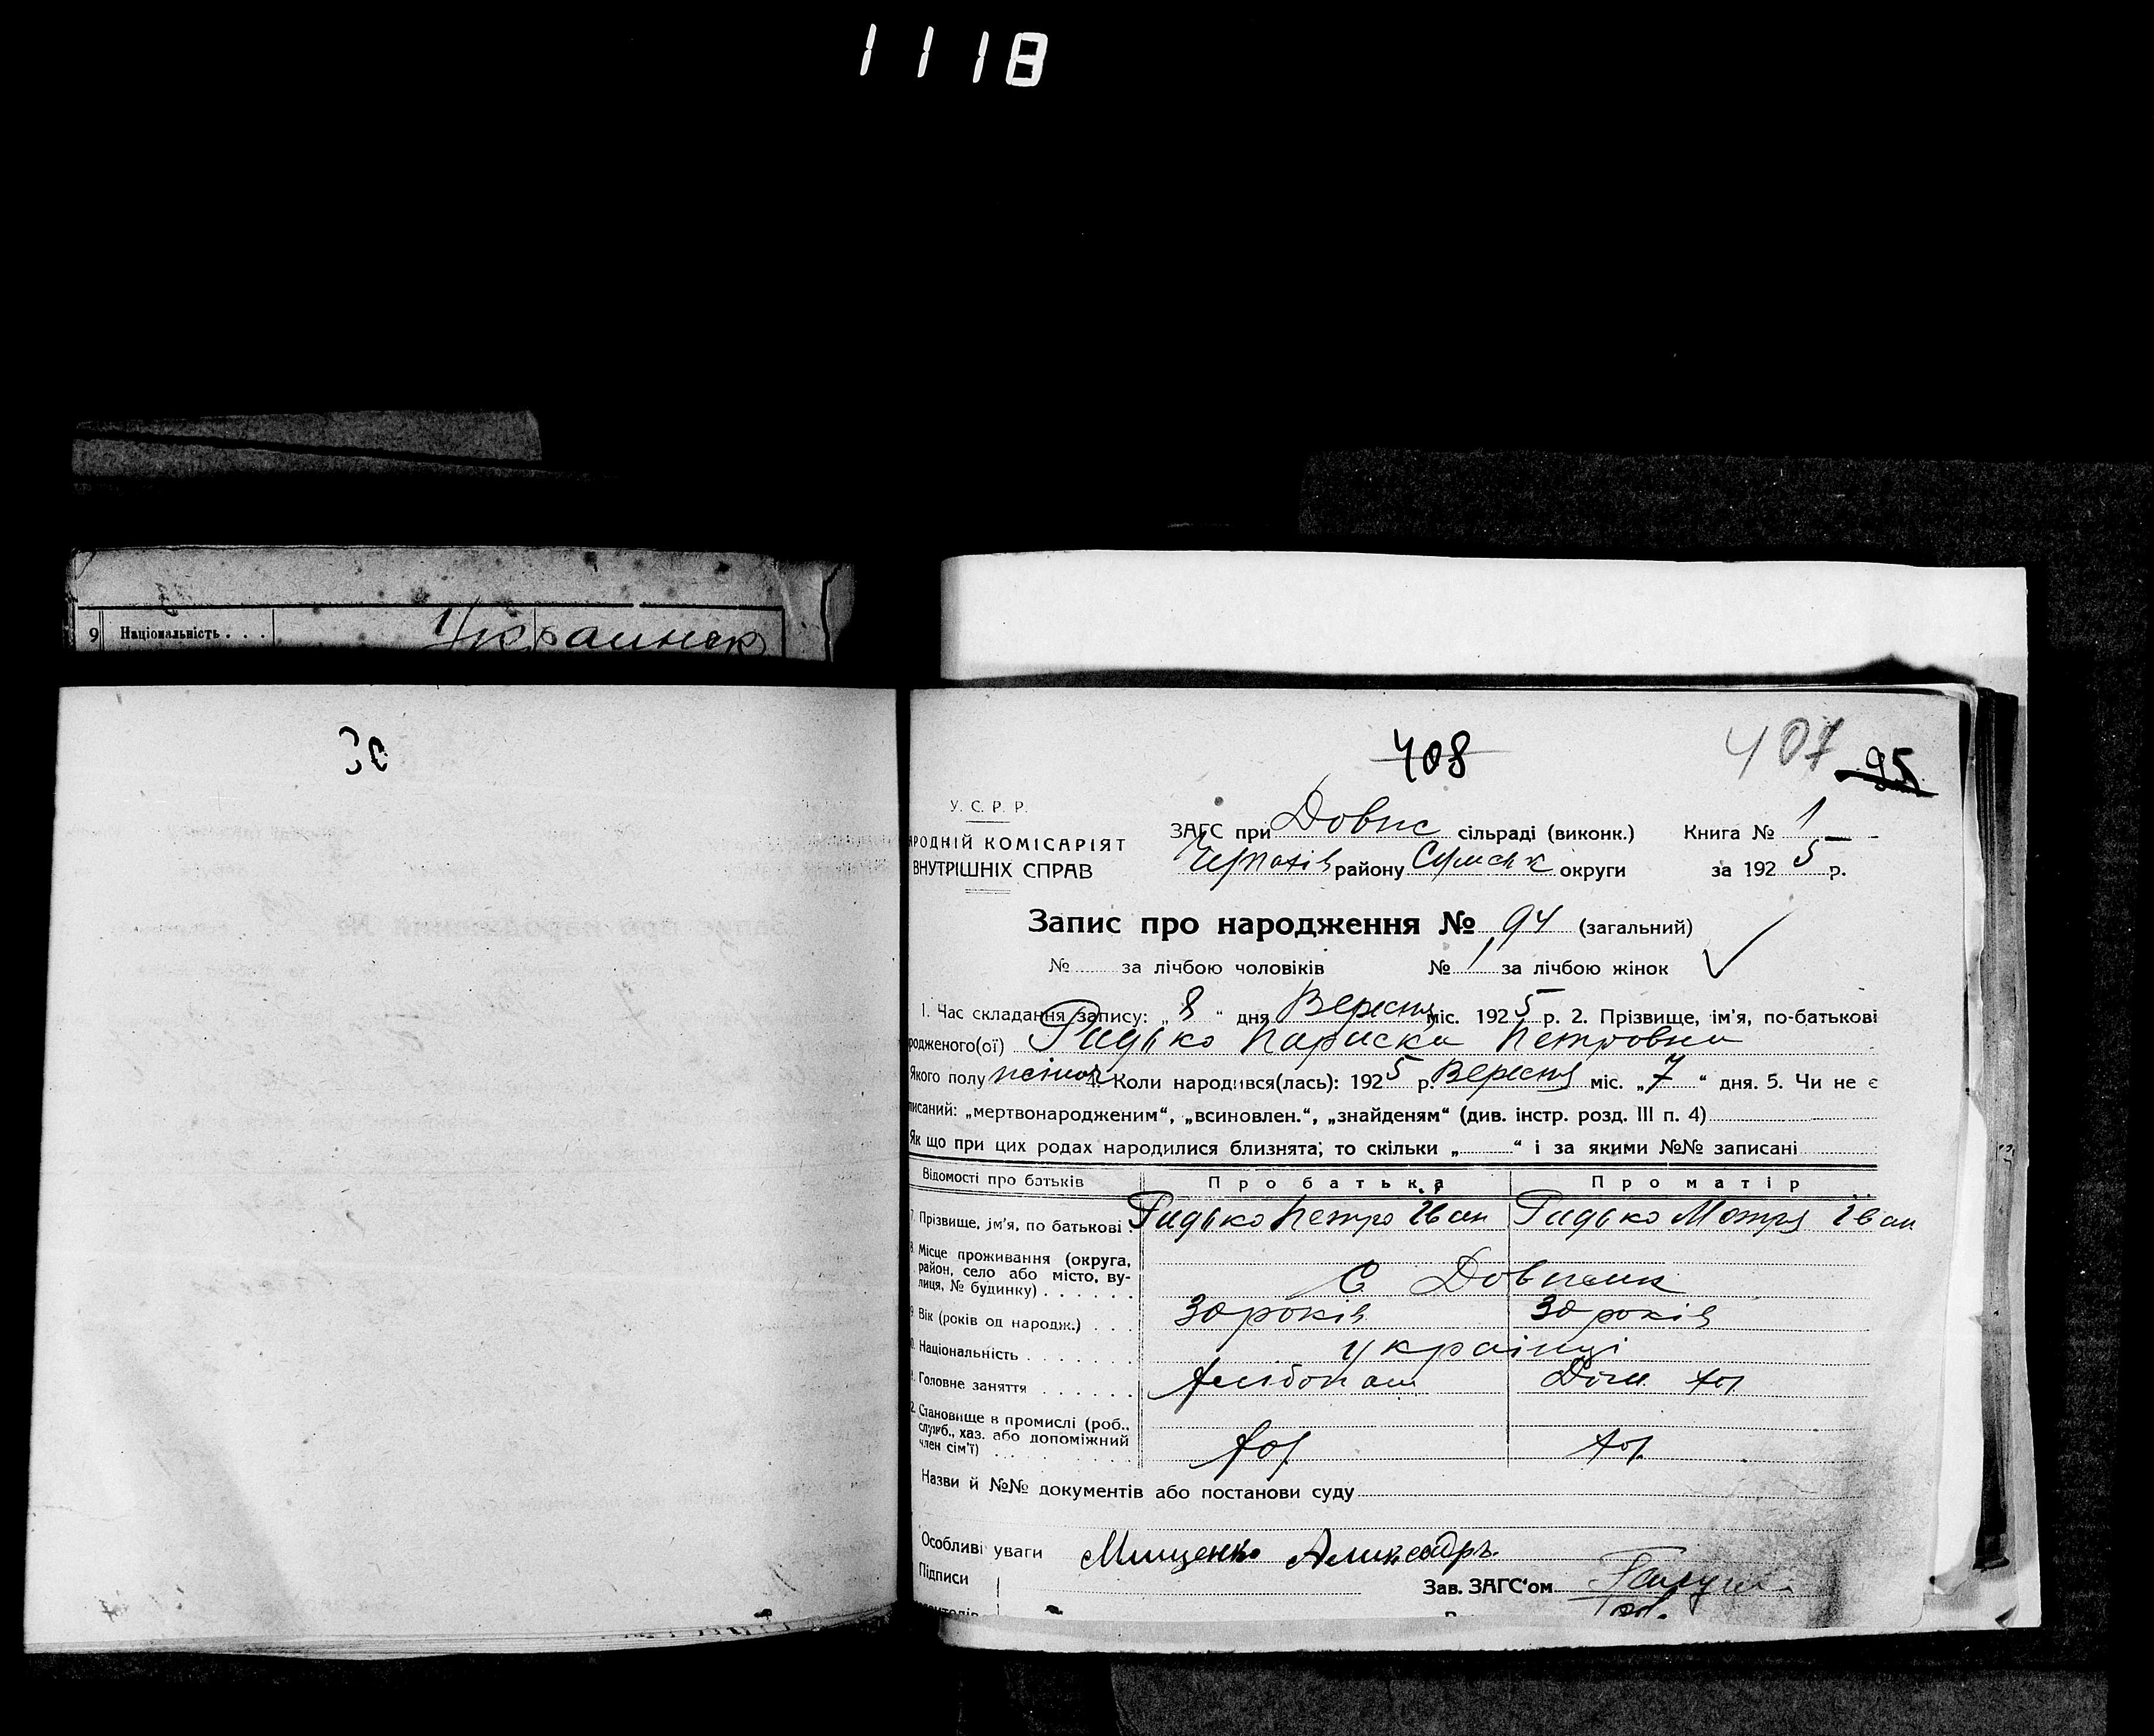 1118
9 Національність . . . Украинск
30
408
407 95
У. С. Р. Р.
РОДНІЙ КОМІСАРІЯТ
ВНУТРІШНІХ СПРАВ
ЗАГС при сільраді (виконк.) Книга № 1
району Сумськ округи за 1925 р.
Запис про народження № 94 (загальний)
№ за лічбою чоловіків № 1 за лічбою жінок
1. Час складання запису: „ 8 “ дня Вересня міс. 1925 р. 2. Прізвище, ім'я, по-батькові
родженого(ої) Гидько Параска Петровна
Якого полу жіноч 4. Коли народився(лась): 1925 р. Вересня міс. „ 7 “ дня. 5. Чи не є
писаний: „мертвонародженим“, „всиновлен.“, „знайденям“ (див. інстр. розд. III п. 4)
Як що при цих родах народилися близнята; то скільки „ “ і за якими №№ записані
Відомості про батьків Про батька Про матір
7. Прізвище, ім'я, по батькові . Гидько Петро Іван Гидько Мотря Іван
8. Місце проживання (округа,
район, село або місто, ву-
лиця, № будинку) . . . . . . С Довжик
9. Вік (років од народж.) . . . 30 років 30 років
Національність . . . . . . . українці
Головне заняття . . . . . . Хлібопаш Дом. хоз
2. Становище в промислі (роб.,
служб., хаз. або допоміжний
член сім'ї) . . . . . . . . . хоз. хоз.
Назви й №№ документів або постанови суду
Особливі уваги Мищенко Александръ.
Підписи Зав. ЗАГС'ом